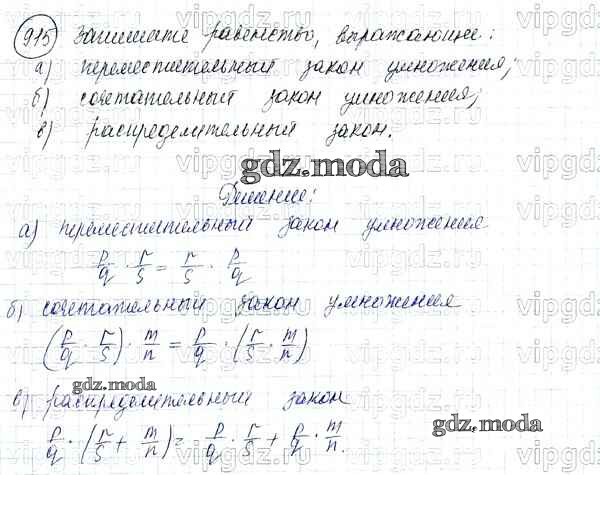 915 Запишите равенство, выражающие:
а) переместительный закон умножения;
б) сочетательный закон умножения;
в) распределительный закон.
gdz.moda
Решение:
а) переместительный закон умножения
p/q · r/s = r/s · p/q
б) сочетательный закон умножения
(p/q · r/s) · m/n = p/q · (r/s · m/n)
gdz.moda
в) распределительный закон
gdz.moda
p/q · (r/s + m/n) = p/q · r/s + p/q · m/n.